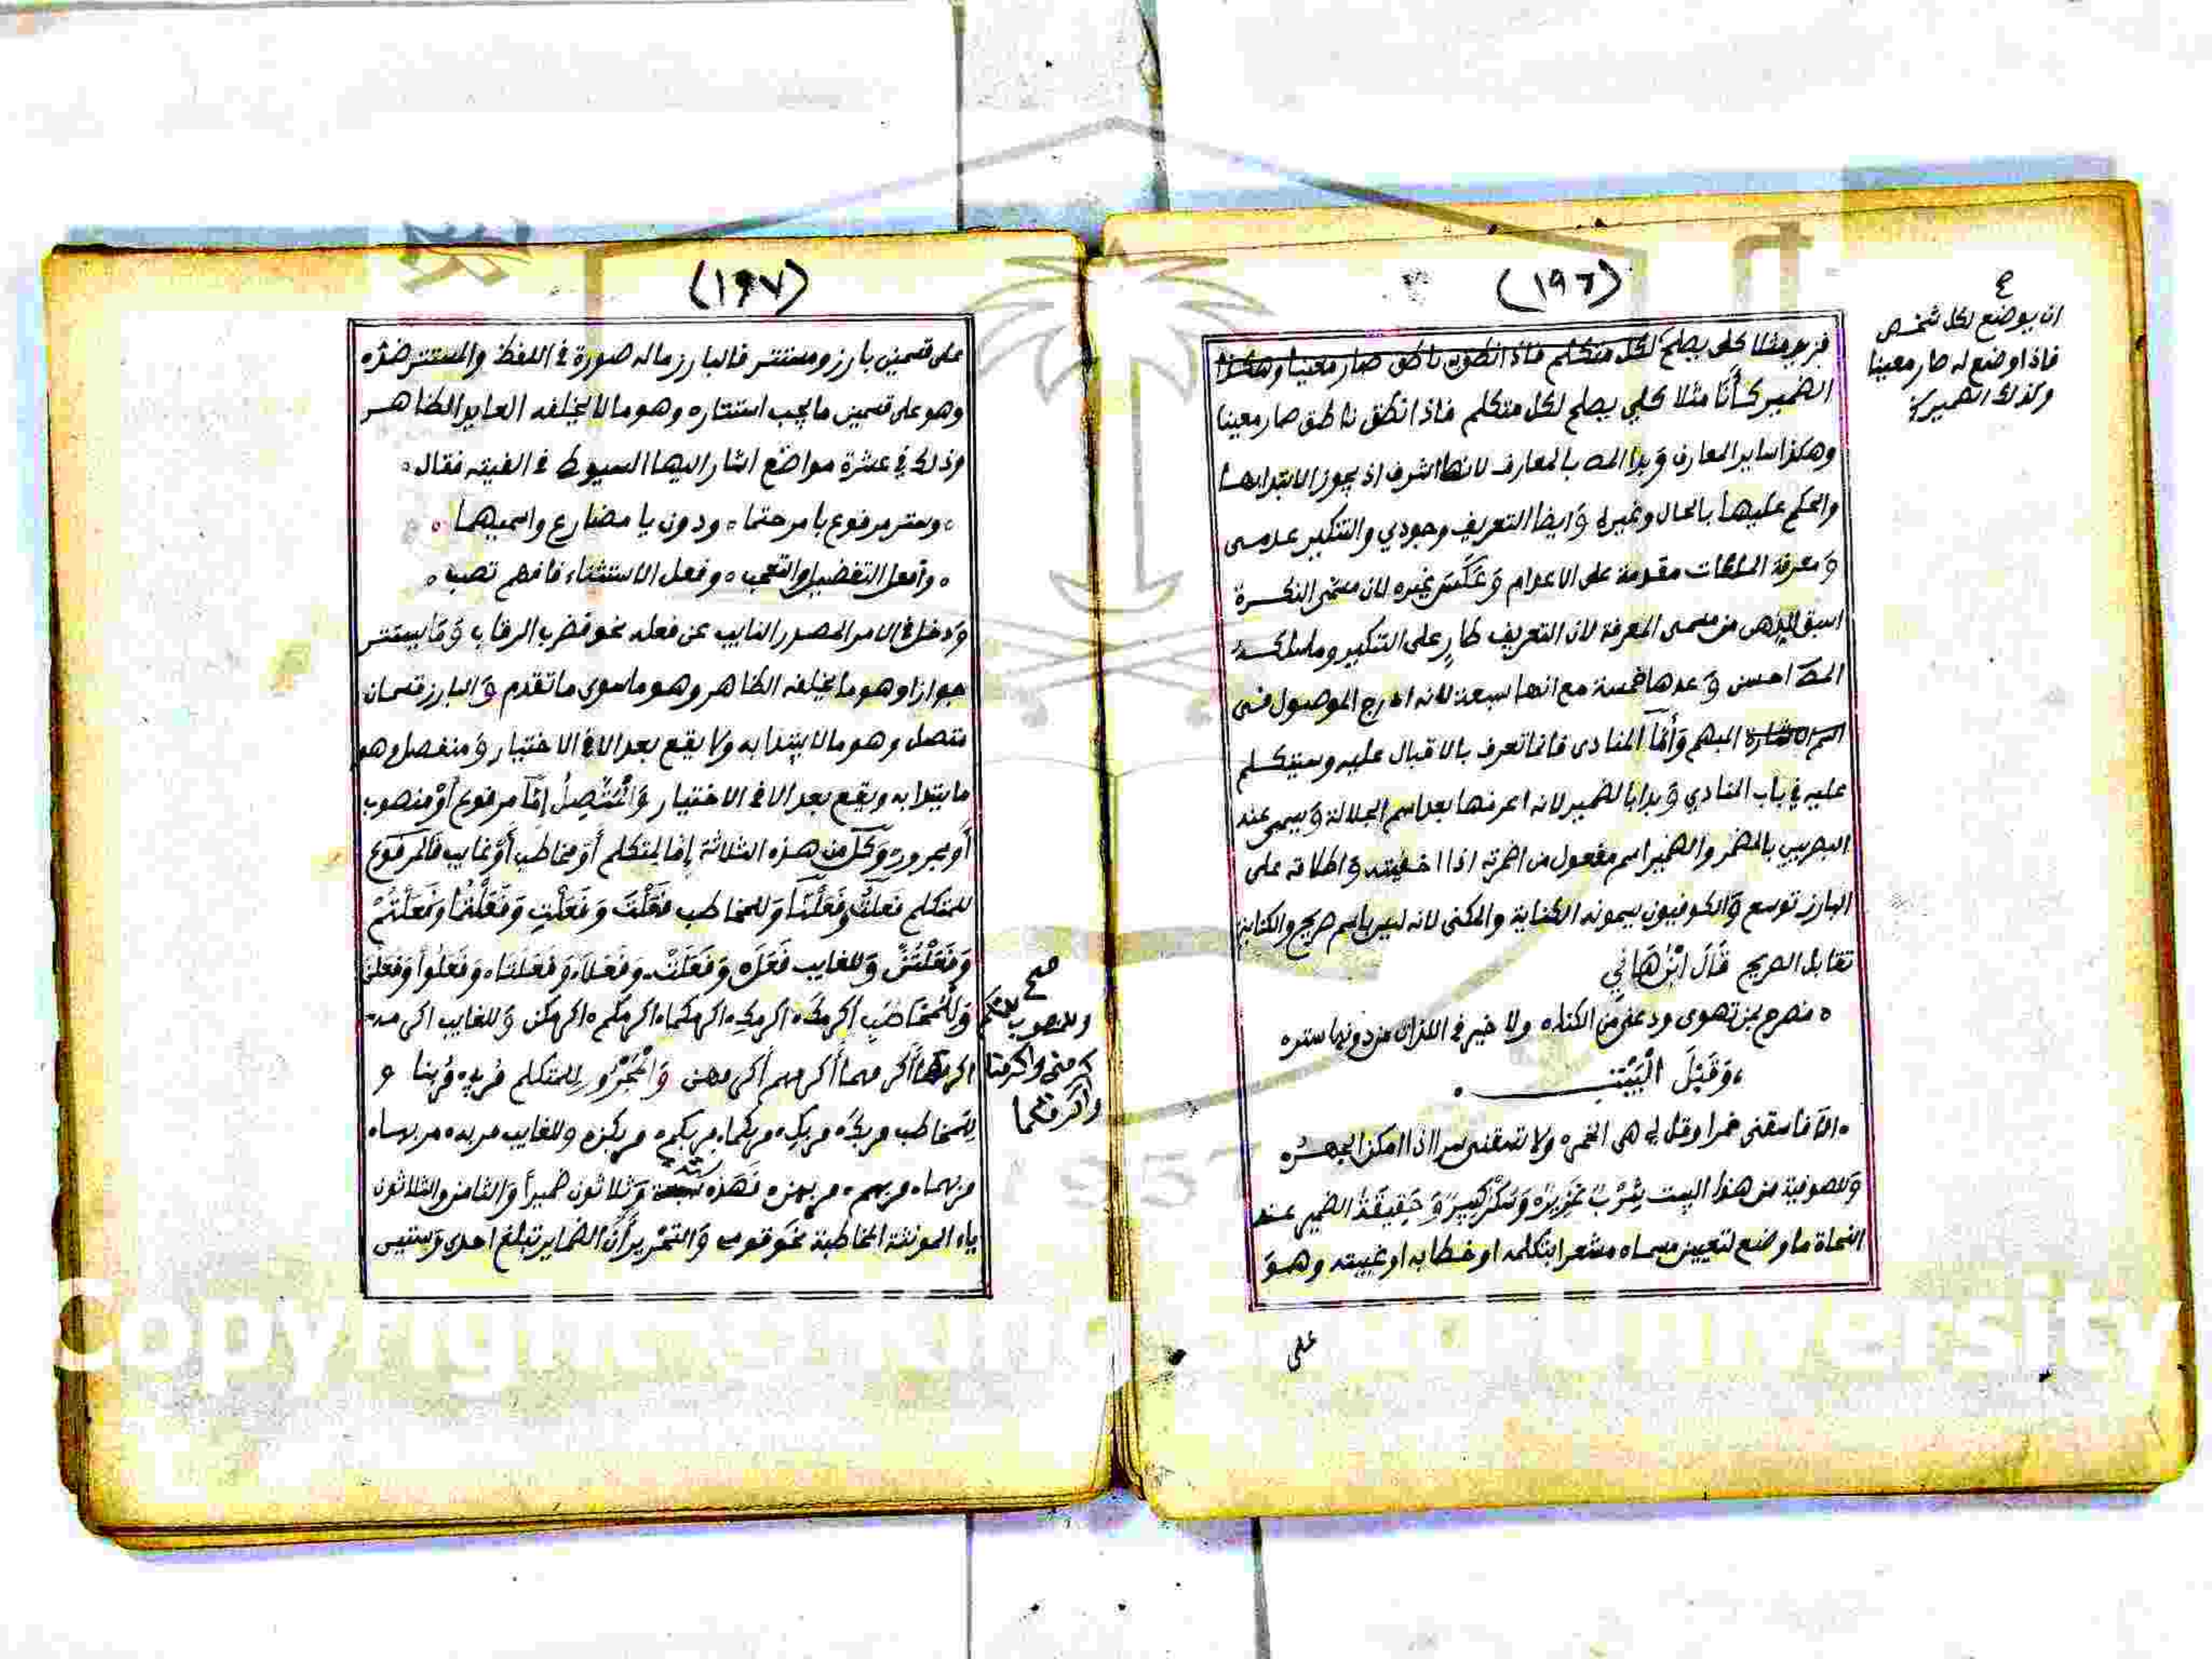 (١٩٦)
ان يوضع لكل شخص
فاذا وضع له صار معينا
وكذلك الضمير
فزيد مثلا كلي يصلح لكل متكلم فاذا نطق به ناطق صار معينا وهكذا
الضمير كأنا مثلا كلي يصلح لكل متكلم فاذا نطق ناطق صار معينا
وهكذا ساير المعارف وبدا المص بالمعارف لانها اشرف اذ يجوز الابتدا بها
والحكم عليها بالحال وغيره وايضا التعريف وجودي والتنكير عدمي
ومعرفة الملكات مقدمة على الاعدام وعكس غيره لان مسمى النكرة
اسبق للذهن من مسمى المعرفة لان التعريف طارٍ على التنكير وما سلكه
المص احسن وعدها خمسة مع انها سبعة لانه ادرج الموصول في
اسم الاشارة المبهم وأما المنادى فانما تعرف بالاقبال عليه وسيتكلم
عليه في باب المنادي وبدا بالضمير لانه اعرفها بعد اسم الجلالة ويسمى عند
البصريين بالمضمر والضمير اسم مفعول من اضمرته اذا اخفيته واطلاقه على
البارز توسع والكوفيون يسمونه الكناية والمكنى لانه ليس باسم صريح والكناية
تقابل الصريح قَالَ ابْنُ هَانِي
فصرح بمن تهوى ودعني من الكنا ولا خير في اللذات من دونها ستر
وَقَبْلَ الْبَيْتِ
الا فاسقني خمرا وقل لي هي الخمر ولا تسقني سرا اذا امكن الجهر
وللصوفية من هذا البيت شُرْبٌ غَزِيرٌ وَسُكْرٌ كَبِيرٌ وَحَقِيقَةُ الضمير عند
النحاة ما وضع لتعيين مسماه مشعرا بتكلمه او خطابه او غيبته وهو
على
(١٩٧)
على قسمين بارز ومستتر فالبارز ماله صورة في اللفظ والمستتر ضده
وهو على قسمين ما يجب استتاره وهو مالا يخلفه العايد الظاهر
وذلك في عشرة مواضع اشار اليها السيوطي في الفيته فقال
وستر مرفوع بامر حتما ودون يا مضارع واسميهما
وأفعل التفضيل والتعجب وفعل الاستثناء فافهم تصب
ودخل في الامر المصدر النايب عن فعله نحو فضرب الرقاب وما يستتر
جوازا وهو ما يخلفه الظاهر وهو ما سوى ما تقدم والبارز قسمان
متصل وهو ما لا يبتدا به ولا يقع بعد الا في الاختيار ومنفصل وهو
ما يبتدا به ويقع بعد الا في الاختيار وَالْمُتَّصِلُ إِمَّا مرفوع أَوْ منصوب
أو مجرور وَكل من هذه الثلاثة إما لمتكلم أَوْ مخاطب أَوْ غايب فالمرفوع
للمتكلم فَعَلْتُ وفَعَلْنَا وللمخاطب فَعَلْتَ وَفَعَلْتِ وَفَعَلْتُمَا وفَعَلْتُمْ
وَفَعَلْتُنَّ وَللغايب فَعَلَ وَفَعَلَتْ وَفَعَلَا وَفَعَلَتَا وَفَعَلُوا وَفَعَلْنَ
صح
وللمنصوب للمتكلم
اكرمني واكرمنا
وَلِلْمُخَاطَبِ اكرمكَ اكرمكِ اكرمكما اكرمكم اكرمكن وللغايب اكرمه
اكرمها أكرمهما أكرمهم أكرمهن وَالْمَجْرُور للمتكلم مُربي مُربنا و
للمخاطب مربكَ مربكِ مربكما مربكم مربكن وللغايب مربه مربها
مربهما مربهم مربهن فَهَذه ستة وَثلاثون ضميراً وَالثامن والثلاثون
ياء المونثة المخاطبة نحو قومي وَالتحْرير أَنَّ الضماير تبلغ احدى وستين